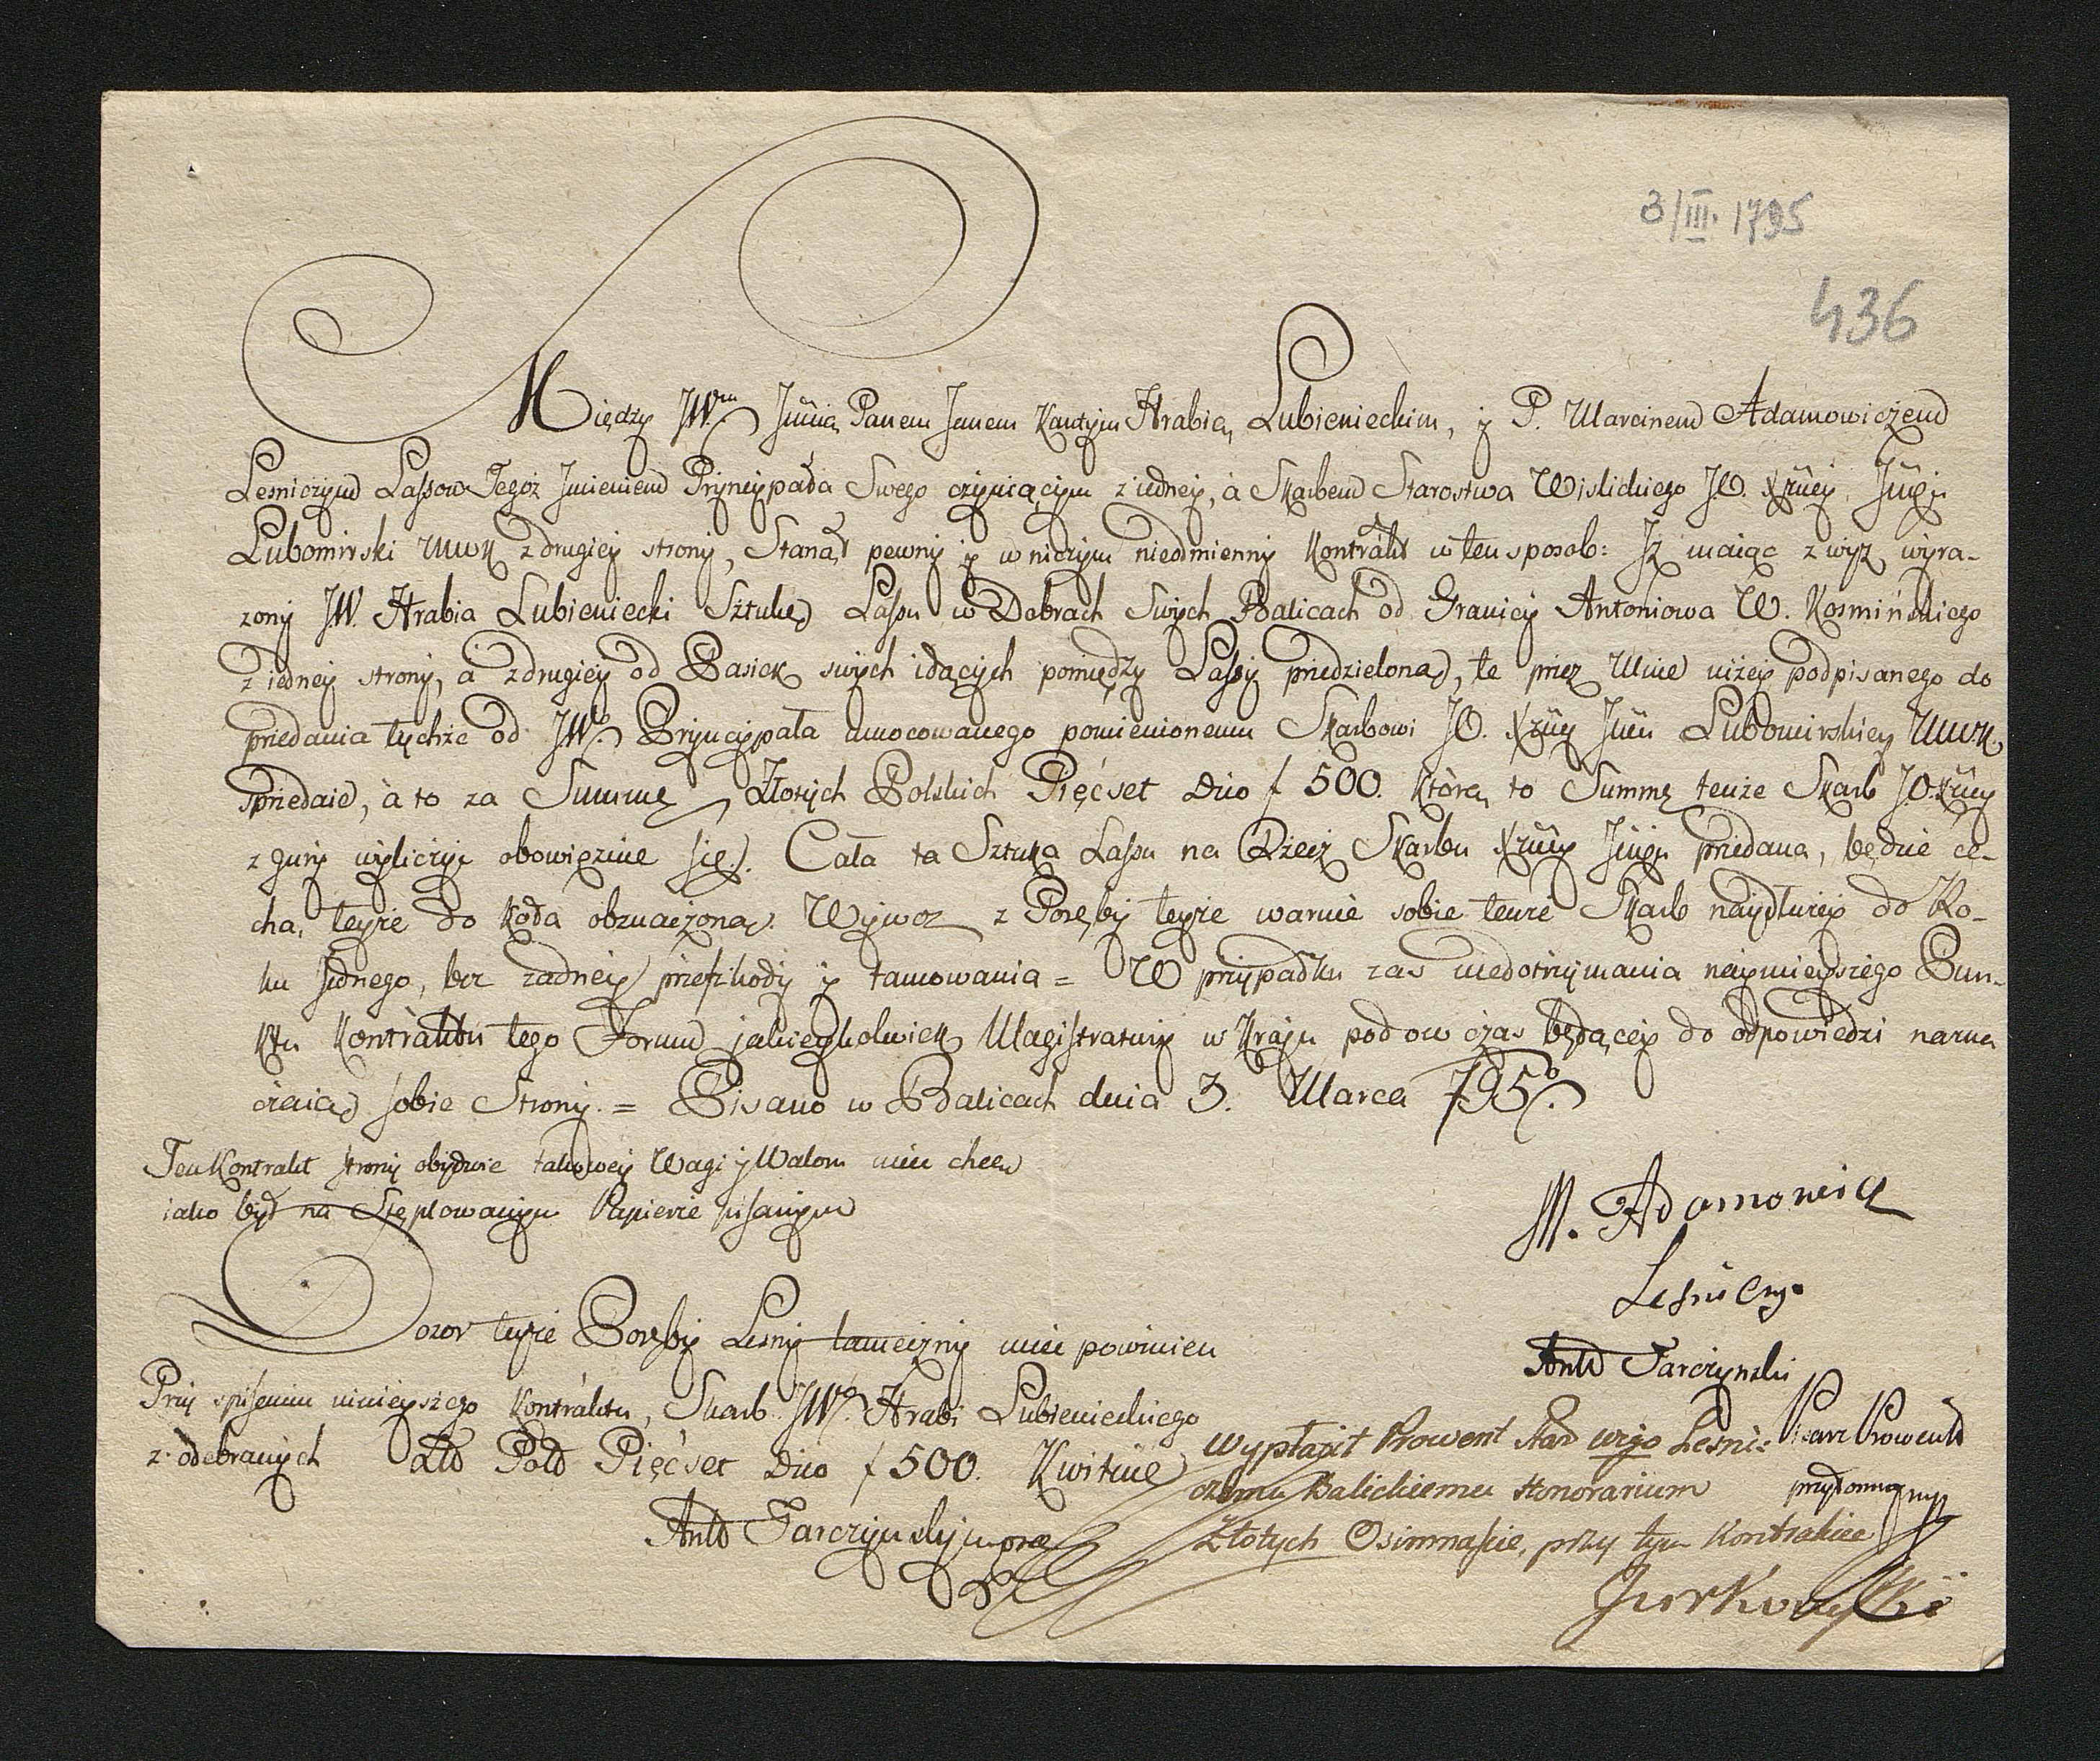 3/III. 1795
436
Między JWm Jmcią Panem Janem Kantym Hrabią Lubienieckim, y P. Marcinem Adamowiczem
Lesniczym Lassow Tegoż Jmieniem Pryncypała Swego czyniącym z iedney, á Skarbem Starostwa Wislickiego JO. Xżney Jmći
Lubomirski MWK z drugiey strony, Stanął pewny y w niczym nieodmienny Kontrákt w ten sposob: Iż maiąc z wyż wyra-
zony JW. Hrabia Lubieniecki Sztukę Lassu w Dobrach Swych Balicach od Granicy Antoniowa W. Kosmińskiego
z iedney strony, á z drugiey od Pasiek swych idących pomiędzy Lassy przedzieloną, te przez Mnie niżey podpisanego do
przedania tychże od JWo Pryncypała umocowanego pomienionemu Skarbowi JO. Xżney Jmći Lubomirskiey MWK.
sprzedaie, á to za Summę Złotych Polskich Pięćset Dico f 500. Którą to Summę tenże Skarb J.O. Xżney
z gury wyliczyć obowięzuie się. Cała ta Sztuka Lassu na Rzecz Skarbu Xżney Jmći przedana, będzie ce-
chą teyże do koła obznaczona. Wywoz z Poręby teyże waruie sobie tenże Skarb naydłużey do Ro-
ku Jednego, bez zadney przeszkody y tamowania = W przypadku zas niedotrzymania naymnieyszego Pun-
ktu Kontráktu tego Forum jakieykolwiek Magistratury w Kraju pod ow czas będącey do odpowiedzi nazna
czaią sobie Strony. = Pisano w Balicach dnia 3. Marca 795o.
Ten Kontrakt strony obydwie takowey Wagi y Walom mieć chcą
iako był na Stęplowanym Papierze pisanym
M. Adamowicz
Lesniczy
Dozor teyże Poręby Lesny tameczny mieć powinien
Antd Tarczynski
Pisarz Prowentd
przytomny
Przy spisaniu ninieyszego Kontráktu, Skarb JWo Hrabi Lubienieckiego
z odebranych Złd Pold Pięćset Dico f 500. Kwituie
Antd Tarczynsky mp
Wypłazit Prowent Star wzgo Lesni-
czemu Balickiemu Honorarium
Złotych Osimnaście, przy tym Kontrakcie